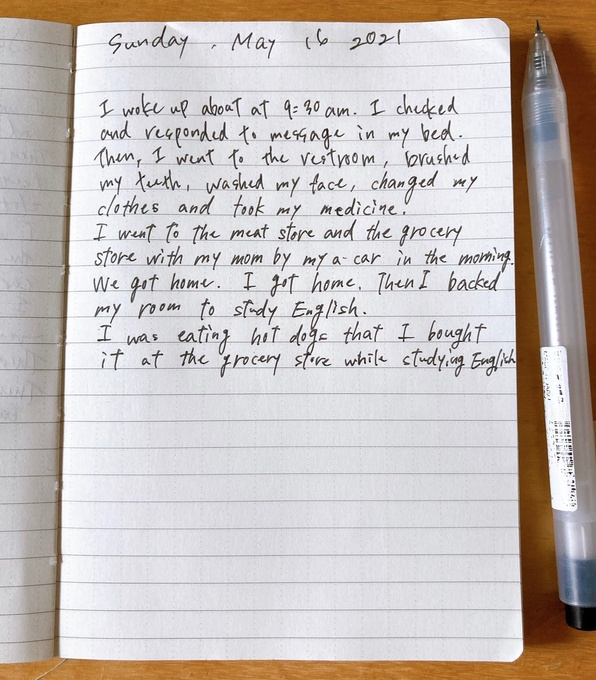 Sunday, May 16 2021
I woke up about at 9:30 am. I checked
and responded to message in my bed.
Then, I went to the restroom, brushed
my teeth, washed my face, changed my
clothes and took my medicine.
I went to the meat store and the grocery
store with my mom by my a-car in the morning.
We got home. I got home. Then I backed
my room to study English.
I was eating hot dogs that I bought
it at the grocery store while studying English